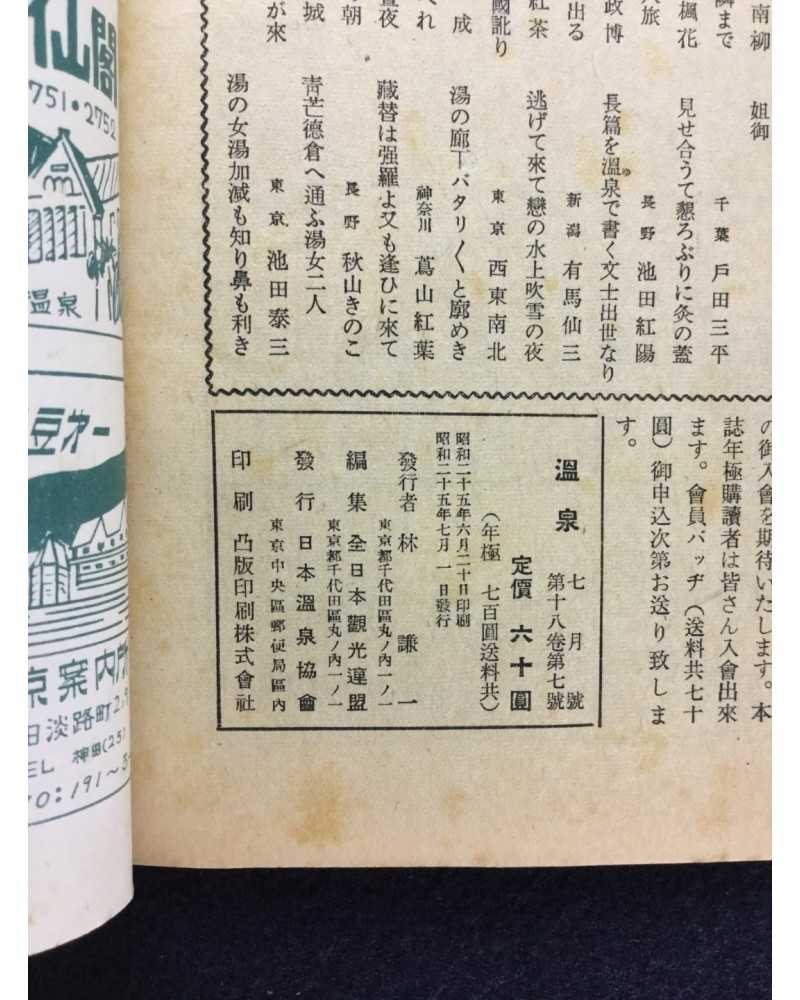 南柳
姐御
隣まで
千葉 戶田三平
楓花
見せ合うて懇ろぶりに灸の蓋
旅
長野 池田紅陽
政博
長篇を溫泉で書く文士出世なり
出る
新潟 有馬仙三
紅茶
逃げて來て戀の水上吹雪の夜
國訛り
東京 西東南北
成
湯の廊下バタリ〱と廓めき
くれ
神奈川 蔦山紅葉
晝夜
藏替は强羅よ又も逢ひに來て
の朝
長野 秋山きのこ
城
靑芒德倉へ通ふ湯女二人
が來
東京 池田泰三
湯の女湯加減も知り鼻も利き
の御入會を期待いたします。本
誌年極購讀者は皆さん入會出來
ます。會員バッヂ(送料共七十
圓)御申込次第お送り致しま
す。
溫泉 七月號
第十八卷第七號
定價 六十圓
(年極 七百圓送料共)
昭和二十五年六月二十日印刷
昭和二十五年七月一日發行
發行者 林謙一
東京都千代田區丸ノ內一ノ一
編集 全日本觀光連盟
東京都千代田區丸ノ內一ノ一
發行 日本溫泉協會
東京中央區郵便局區內
印刷 凸版印刷株式會社
仙閣
751・2752
温泉
豆才一
京案内所
淡路町2ノ9
TEL 神田(25)
191〜3